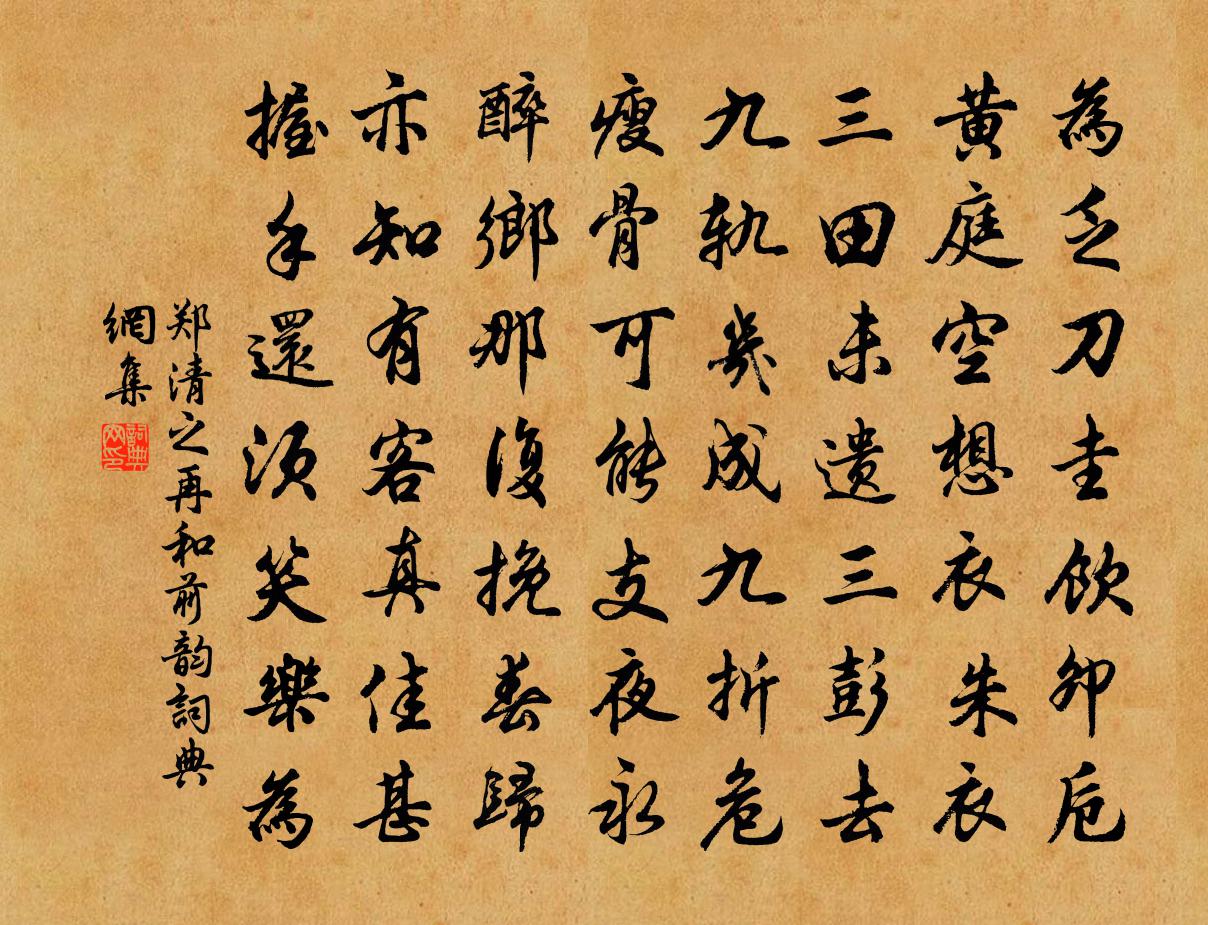 為乏刀圭飲卯卮
黃庭空想衣朱衣
三田未遣三彭去
九軌幾成九折危
瘦骨可能支夜永
醉鄉那復挽春歸
亦知有客真佳甚
握手還須笑樂為
郑清之再和前韵詞典
網集
詞典网印